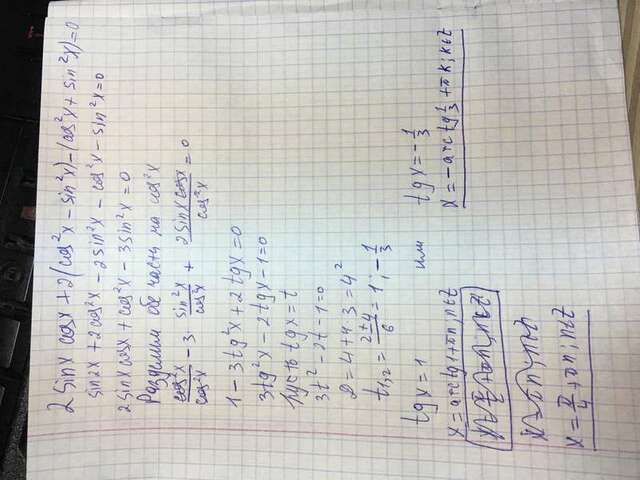 2 sinx cosx + 2(cos²x - sin²x) - (cos²x + sin²x) = 0
sin2x + 2cos²x - 2sin²x - cos²x - sin²x = 0
2sinx cosx + cos²x - 3sin²x = 0
Разделим обе части на cos²x
cos²x/cos²x - 3 · sin²x/cos²x + 2sinx cosx/cos²x = 0
1 - 3tg²x + 2tgx = 0
3tg²x - 2tgx - 1 = 0
Пусть tgx = t
3t² - 2t - 1 = 0
D = 4 + 4·3 = 4²
t₁,₂ = (2±4)/6 = 1; -1/3
tgx = 1 или tgx = -1/3
x = arctg1 + πn; n∈Z x = -arctg 1/3 + πk; k∈Z
x = π/4 + πn; n∈Z